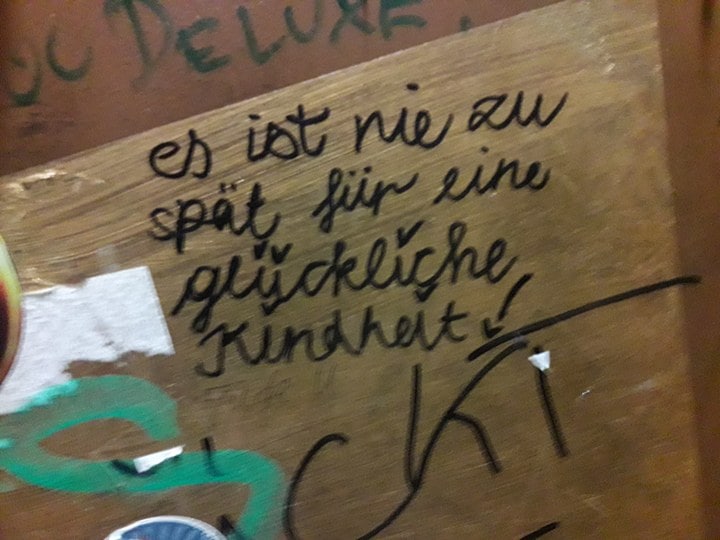 DELUXE.
es ist nie zu
spät für eine
glückliche
Kindheit!